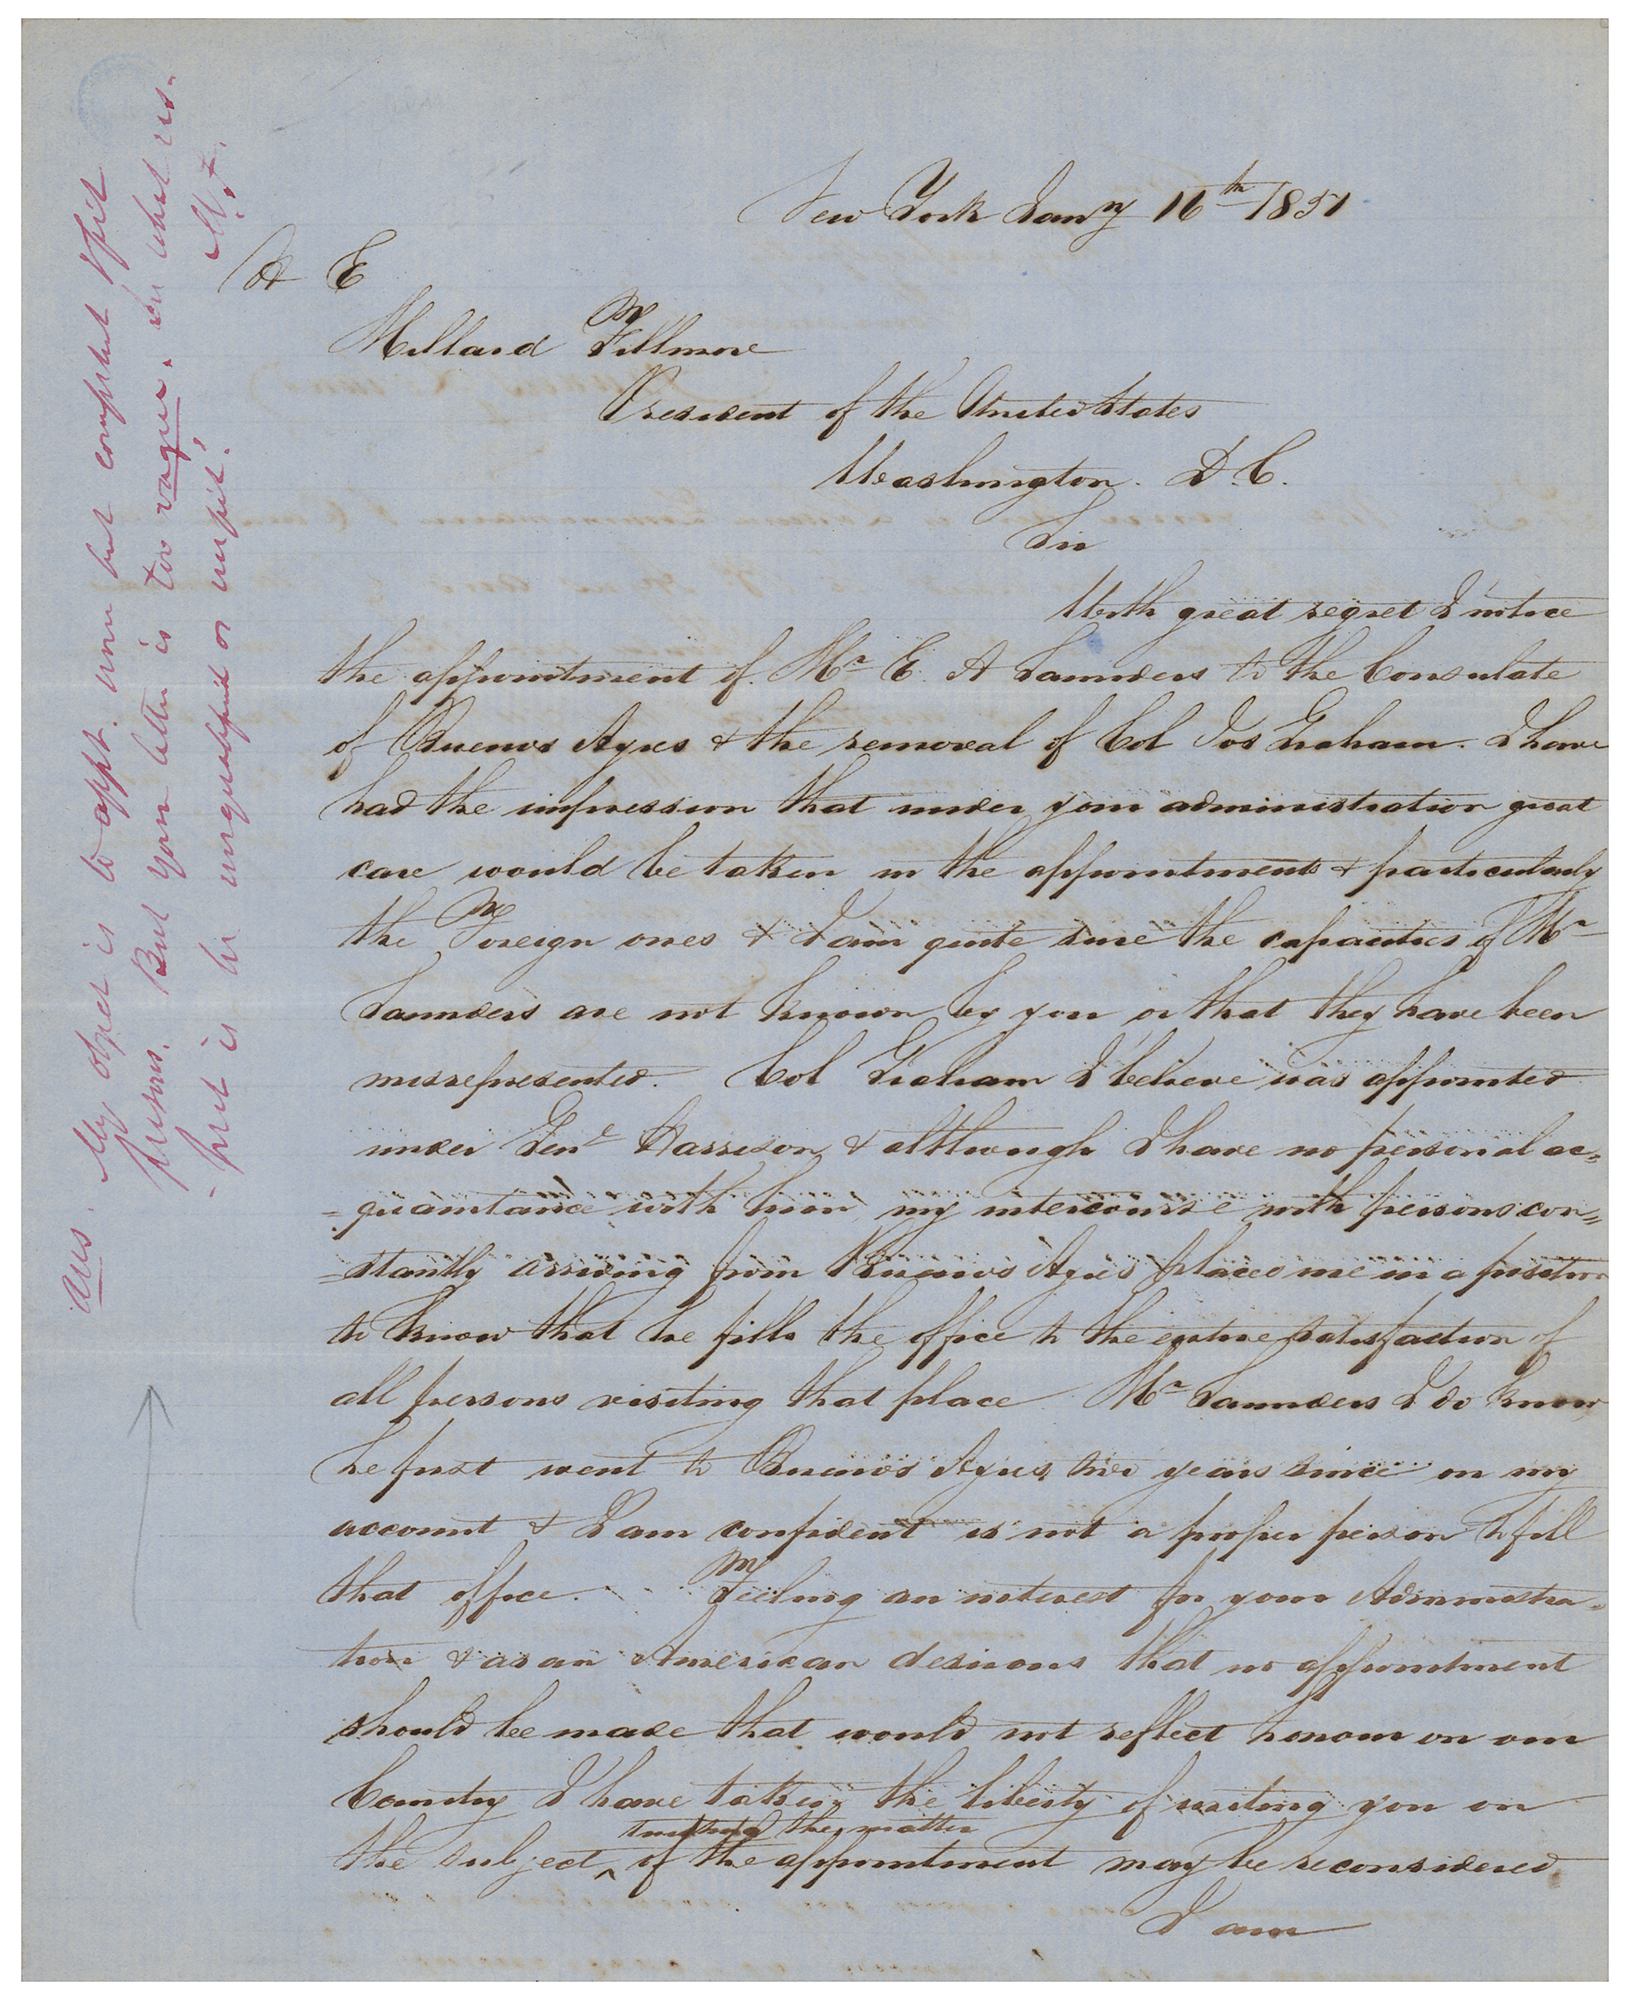 New York Jany 16th 1851
H E
Millard Fillmore
President of the United States
Washington. D.C.
Sir
With great regret I notice
the appointment of Mr E. A Saunders to the Consulate
of Buenos Ayres & the removal of Col Jos Graham. I have
had the impression that under your administration great
care would be taken in the appointments & particularly
the Foreign ones & I am quite sure the capacities of Mr
Saunders are not known by you or that they have been
misrepresented. Col Graham I believe was appointed
under Genl Harrison & although I have no personal ac=
=quaintance with him, my intercourse with persons con=
=stantly arriving from Buenos Ayres places me in a position
to know that he fills the office to the entire satisfaction of
all persons visiting that place. Mr Saunders I do know
he first went to Buenos Ayres two years since on my
account & I am confident is not a proper person to fill
that office. Feeling an interest in your Administra=
tion & as an American desirous that no appointment
should be made that would not reflect honour on our
Country I have taken the liberty of writing you on
the subject ^ trusting the matter of the appointment may be reconsidered
I am
Ans. My object is to appt. none but competent & fit
persons. But your letter is too vague. In what res-
-pect is he unqualified or unfit?
M.F.